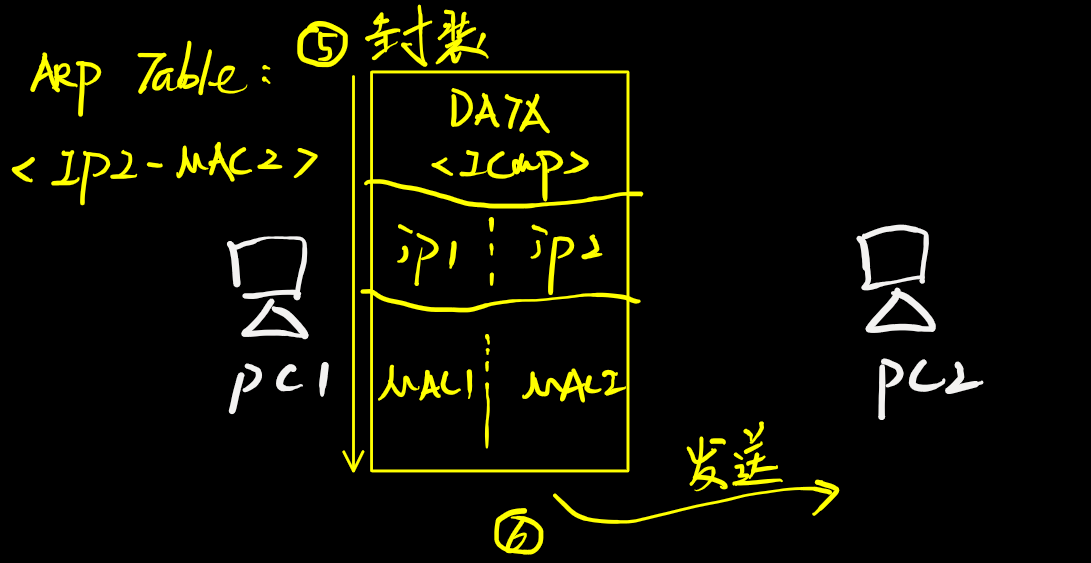 ⑤ 封装
ARP Table:
<IP2-MAC2>
DATA
<ICmp>
ip1 ip2
MAC1 MAC2
PC1
PC2
发送
⑥